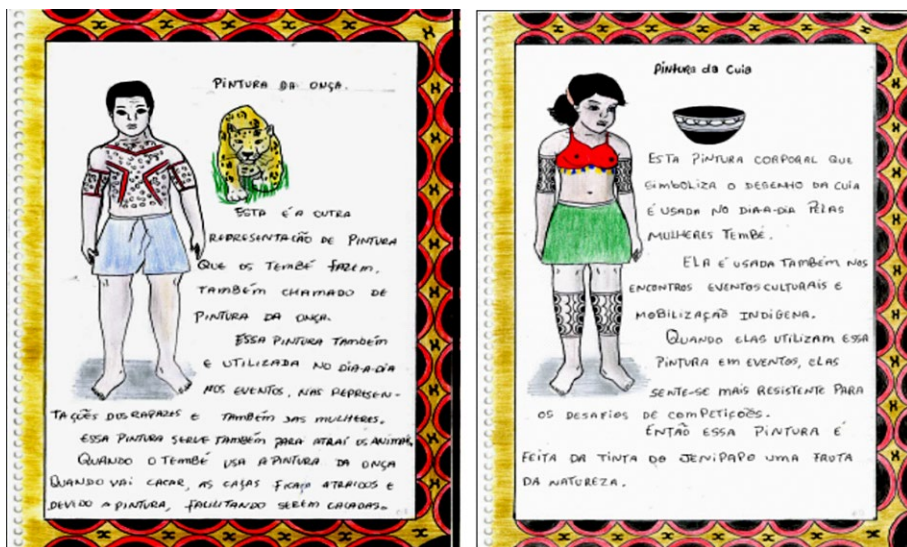 PINTURA DA ONÇA.
ESTA É A OUTRA
REPRESENTAÇÃO DE PINTURA
QUE OS TEMBÉ FAZEM.
TAMBÉM CHAMADO DE
PINTURA DA ONÇA.
ESSA PINTURA TAMBÉM
E UTILIZADA NO DIA-A-DIA
NOS EVENTOS, NAS REPRESEN-
TAÇÕES DOS RAPAZES E TAMBÉM DAS MULHERES.
ESSA PINTURA SERVE TAMBÉM PARA ATRAÍ OS ANIMAS.
QUANDO O TEMBÉ USA A PINTURA DA ONÇA
QUANDO VAI CAÇAR, AS CAÇAS FICAM ATRAIDOS E
DEVIDO A PINTURA, FACILITANDO SEREM CAÇADAS.
Pintura da Cuia
ESTA PINTURA CORPORAL QUE
SIMBOLIZA O DESENHO DA CUIA
É USADA NO DIA-A-DIA PELAS
MULHERES TEMBÉ.
ELA É USADA TAMBÉM NOS
ENCONTROS EVENTOS CULTURAIS E
MOBILIZAÇÃO INDÍGENA.
QUANDO ELAS UTILIZAM ESSA
PINTURA EM EVENTOS, ELAS
SENTE-SE MAIS RESISTENTE PARA
OS DESAFIOS DE COMPETIÇÕES.
ENTÃO ESSA PINTURA É
FEITA DA TINTA DO JENIPAPO UMA FRUTA
DA NATUREZA.